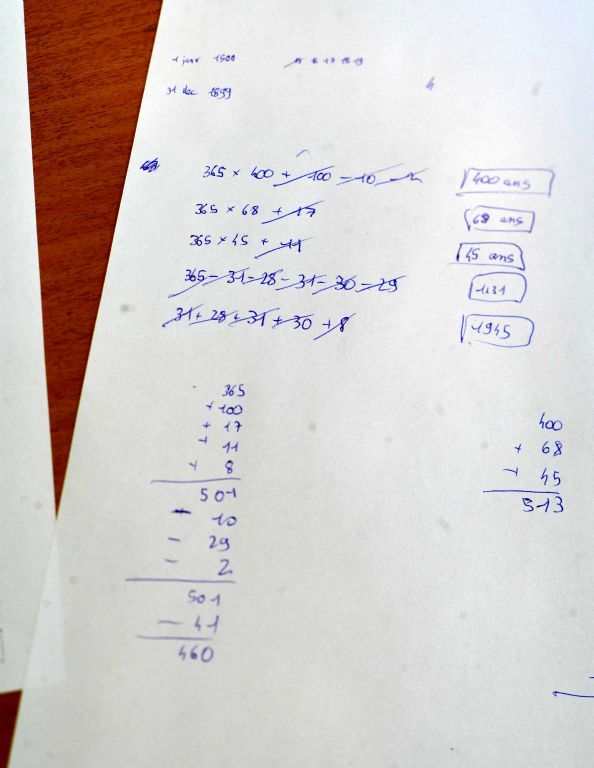 1 janv 1500
15 16 17 18 19
31 dec 1899
4
365 × 400 + 100 - 10 - 2
400 ans
365 × 68 + 17
68 ans
365 × 45 + 11
45 ans
365 - 31 - 28 - 31 - 30 - 29
1131
31 + 28 + 31 + 30 + 8
1945
365
+ 100
+ 17
+ 11
+ 8
501
- 10
- 29
- 2
501
- 41
460
400
+ 68
+ 45
513